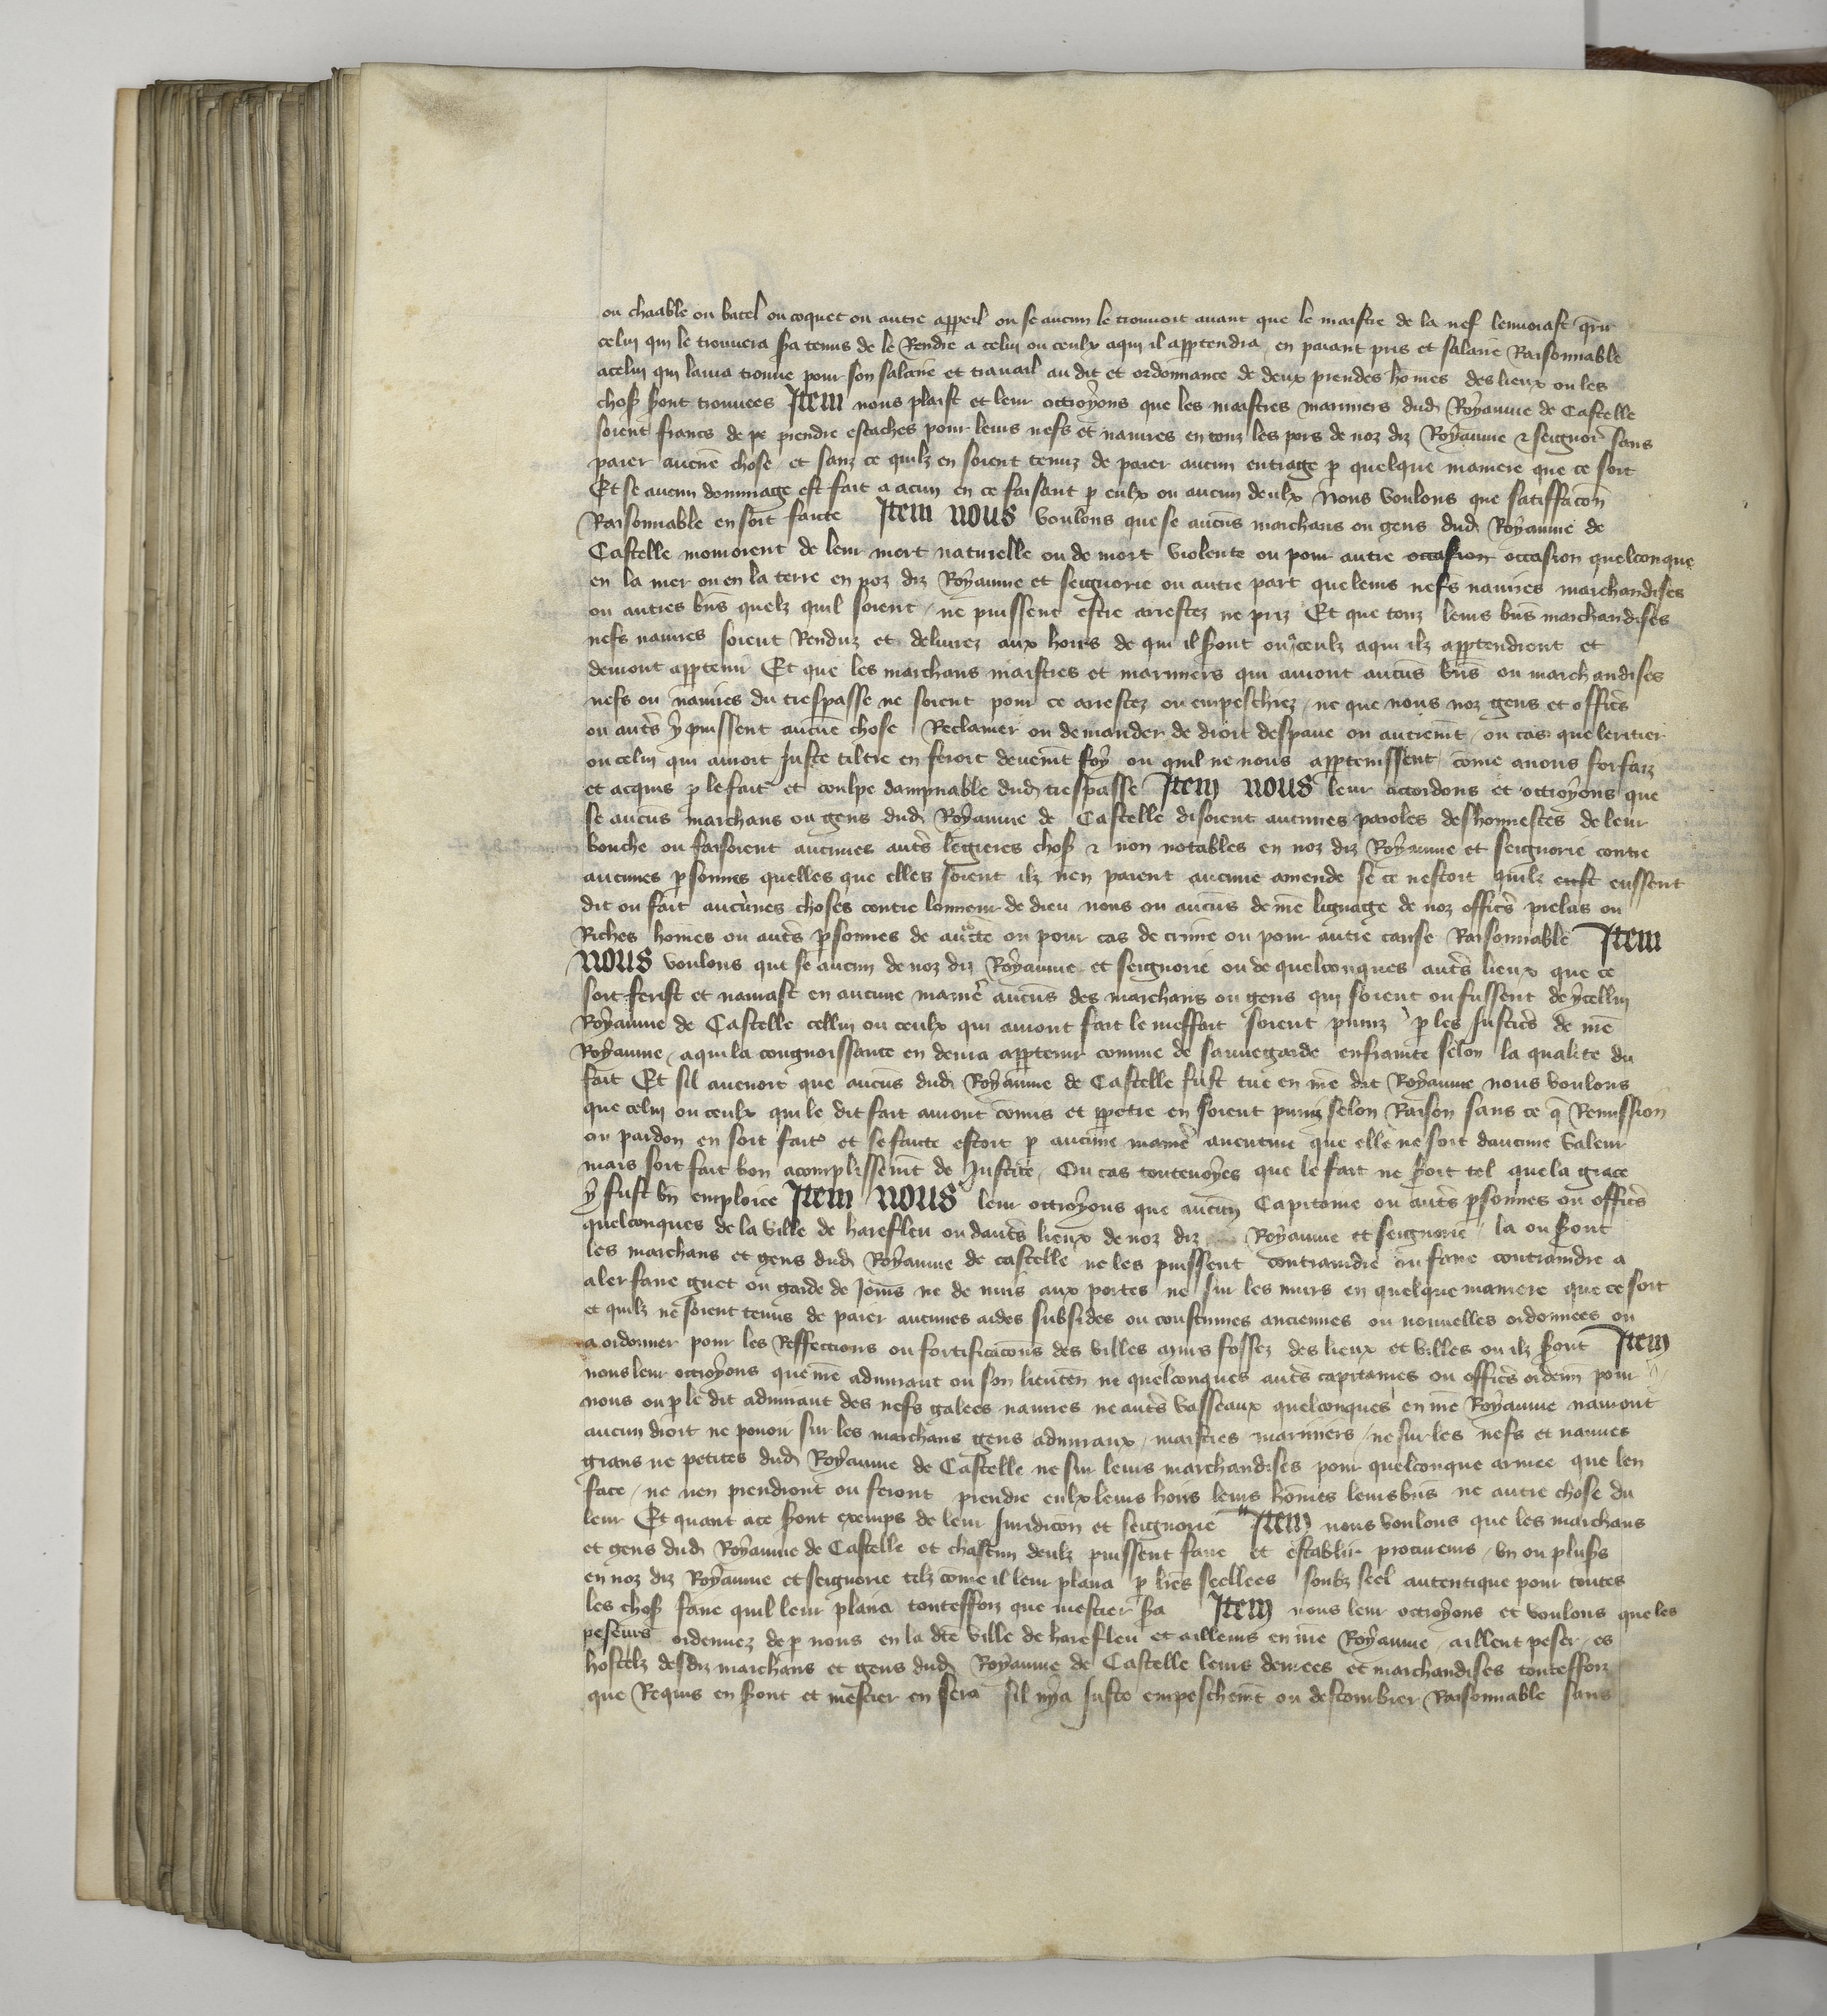 ou chaable ou batel ou coquet ou autre appeil ou se aucun le trouuoit auant que le maistre de la nef lenuoiast querir
celui qui le trouuera sa tenus de le Rendre a celui ou ceulx aqui il apptendra en paiant pris et salaire Raisonnable
acelui qui laura trouue pour son salaire et trauail au dit et ordonnance de deux preudes homes des lieux ou les
choses sont trouuees Item nous plaist et leur octroyons que les maistres mariniers dud Royaume de Castelle
soient francs de pe prendre estaches pour leurs nefs et nauires en touz les pors de noz diz Royaume & seignor sans
paier aucune chose et sanz ce quilz en soient tenuz de paier aucun entrage p quelque maniere que ce soit
Et se aucun dommage est fait a acun en ce faisant p eulx ou aucun deulx Nous voulons que satiffacon
Raisonnable en soit faicte Item nous voulons que se aucuns marchans ou gens dud Royaume de
Castelle mouroient de leur mort naturelle ou de mort violente ou pour autre occasion occasion quelconque
en la mer ou en la terre en noz diz Royaume et seignorie ou autre part que leurs nefs nauires marchandises
ou autres bns quelz quil soient ne puissent estre arrestez ne priz Et que touz leurs bns marchandises
nefs nauires soient Renduz et deliurez aux hoirs de qui il sont ou a ceulz aqui ilz apptendront et
deuront apptenir Et que les marchans maistres et mariniers qui auront aucuns bns ou marchandises
nefs ou nauires du trespasse ne soient pour ce arrestez ou empeschiez ne que nous noz gens et offics
ou auts y puissent aucune chose Reclamer ou demander de droit despaue ou autremt ou cas que leritier
ou celui qui auroit Juste tiltre en feroit deuemt foy ou quil ne nous apptenissent come auons forfaiz
et acquis p le fait et coulpe dampnable dud trespasse Item nous leur accordons et octroyons que
se aucuns marchans ou gens dud Royaume de Castelle disoient aucunes paroles deshonnestes de leur
bouche ou faisoient aucunes auts legieres choses & non notables en noz diz Royaume et seignorie contre
aucunes psonnes quelles que elles soient ilz nen paient aucune amende se ce nestoit quilz eust eussent
dit ou fait aucunes choses contre lonneur de dieu nous ou aucuns de me lignage de noz offics prelas ou
Riches homes ou auts psonnes de auctte ou pour cas de crime ou pour autre cause Raisonnable Item
nous voulons que se aucun de noz diz Royaume et seignorie ou de quelconques auts lieux que ce
soit ferist et naurast en aucune manie aucuns des marchans ou gens qui soient ou fussent de ycellui
Royaume de Castelle cellui ou ceulx qui auront fait le meffait soient puniz p les Justics de me
Royaume aqui la congnoissance en deura apptenir comme de sauuegarde enfrainte selon la qualite du
fait Et sil auenoit que aucuns dud Royaume de Castelle fust tue en me dit Royaume nous voulons
que celui ou ceulx qui le dit fait auront comis et ppetre en soient puniz selon Raison sans ce q Remission
ou pardon en soit fait et se faicte estoit p aucune manie auenture que elle ne soit daucune valeur
mais soit fait bon acomplissemt de Justice Ou cas toutenoyes que le fait ne soit tel que la grace
y fust bn emploiee Item nous leur octroyons que aucun Capitaine ou auts psonnes ou offics
quelconques de la ville de harefleu ou dauts lieux de noz diz Royaume et seignorie la ou sont
les marchans et gens dud Royaume de castelle ne les puissent contraindre ou faire contraindre a
aler faire guet ou garde de Jours ne de nuis aux portes ne sur les murs en quelque maniere que ce soit
et quilz ne soient tenus de paier aucunes aides subsides ou coustumes anciennes ou nouuelles ordonnees ou
a ordonner pour les Reffections ou fortificacons des villes murs fossez des lieux et villes ou ilz sont Item
nous leur octroyons que me admiraut ou son lieuten ne quelconques auts capitaines ou offics ordenn pour
nous ou p le dit admiraut des nefs galees nauires ne auts vasseaux quelconques en me Royaume nauront
aucun droit ne pouoir sur les marchans gens admiraux maistres mariniers ne sur les nefs et nauires
grans ne petites dud Royaume de Castelle ne sur leurs marchandises pour quelconque armee que len
face ne nen prendront ou feront prendre eulx leurs hoirs leurs homes leurs bns ne autre chose du
leur Et quant ace sont exemps de leur Juridicon et seignorie Item nous voulons que les marchans
et gens dud Royaume de Castelle et chascun deulz puissent faire et establir procureurs vn ou plus
en noz diz Royaume et seignorie telz come il leur plaira p lres seellees soubz seel autentique pour toutes
les choses faire quil leur plaira touteffoiz que mestier sa Item nous leur octroyons et voulons que les
peseurs ordennez de p nous en la dte ville de harefleu et ailleurs en me Royaume aillent peser es
hostelz desdiz marchans et gens dud Royaume de Castelle leurs denrees et marchandises touteffoiz
que Requis en sont et mestier en sera sil nya Juste empeschemt ou destourbier Raisonnable sans